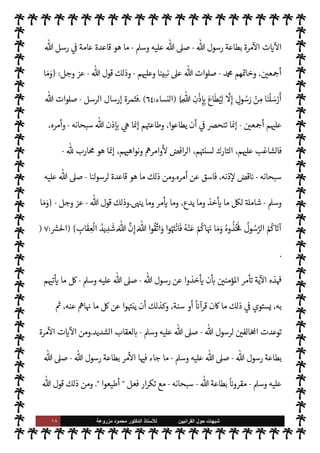 الآيات الآمرة بطاعة رسول الله - صلى الله عليه وسلم - ما هو قاعدة عامة في رسل الله
أجمعين, وخاتمهم محمد - صلوات الله على نبينا وعليهم - وذلك قول الله - عز وجل: (وَمَا
أَرْسَلْنَا مِنْ رَسُولٍ إِلَّا لِيُطَاعَ بِإِذْنِ اللَّهِ) (النساء:٦٤) .فثمرة إرسال الرسل - صلوات الله
عليهم أجمعين - إنما تنحصر في أن يطاعوا, وطاعتهم إنما هي بإذن الله - سبحانه - وأمره,
فالشاغب عليهم, التارك لسنتهم, الرافض لأوامرهم ونواهيهم, إنما هو محارب لله -
سبحانه - ناقض لإذنه, فاسق عن أمره.ومن ذلك ما هو قاعدة لرسولنا - صلى الله عليه
وسلم - شاملة لكل ما يأخذ وما يدع, وما يأمر وما ينهى.وذلك قول الله - عز وجل - (وَمَا
آتَاكُمُ الرَّسُولُ فَخُذُوهُ وَمَا نَهَاكُمْ عَنْهُ فَانْتَهُوا وَاتَّقُوا اللَّهَ إِنَّ اللَّهَ شَدِيدُ الْعِقَابِ) (الحشر: ٧)
.
فهذه الآية تأمر المؤمنين بأن يأخذوا عن رسول الله - صلى الله عليه وسلم - كل ما يأتيهم
به, يستوي في ذلك ما كان قرآناً أو سنة, وكذلك أن ينتهوا عن كل ما نهاهم عنه, ثم
توعدت المخالفين لرسول الله - صلى الله عليه وسلم - بالعقاب الشديد.ومن الآيات الآمرة
بطاعة رسول الله - صلى الله عليه وسلم - ما جاء فيها الأمر بطاعة رسول الله - صلى الله
عليه وسلم - مقروناً بطاعة الله - سبحانه - مع تكرار فعل " أطيعوا ". ومن ذلك قول الله
شبهات حول القرآنيين للأستاذ الدكتور محمود مزروعة ١٨